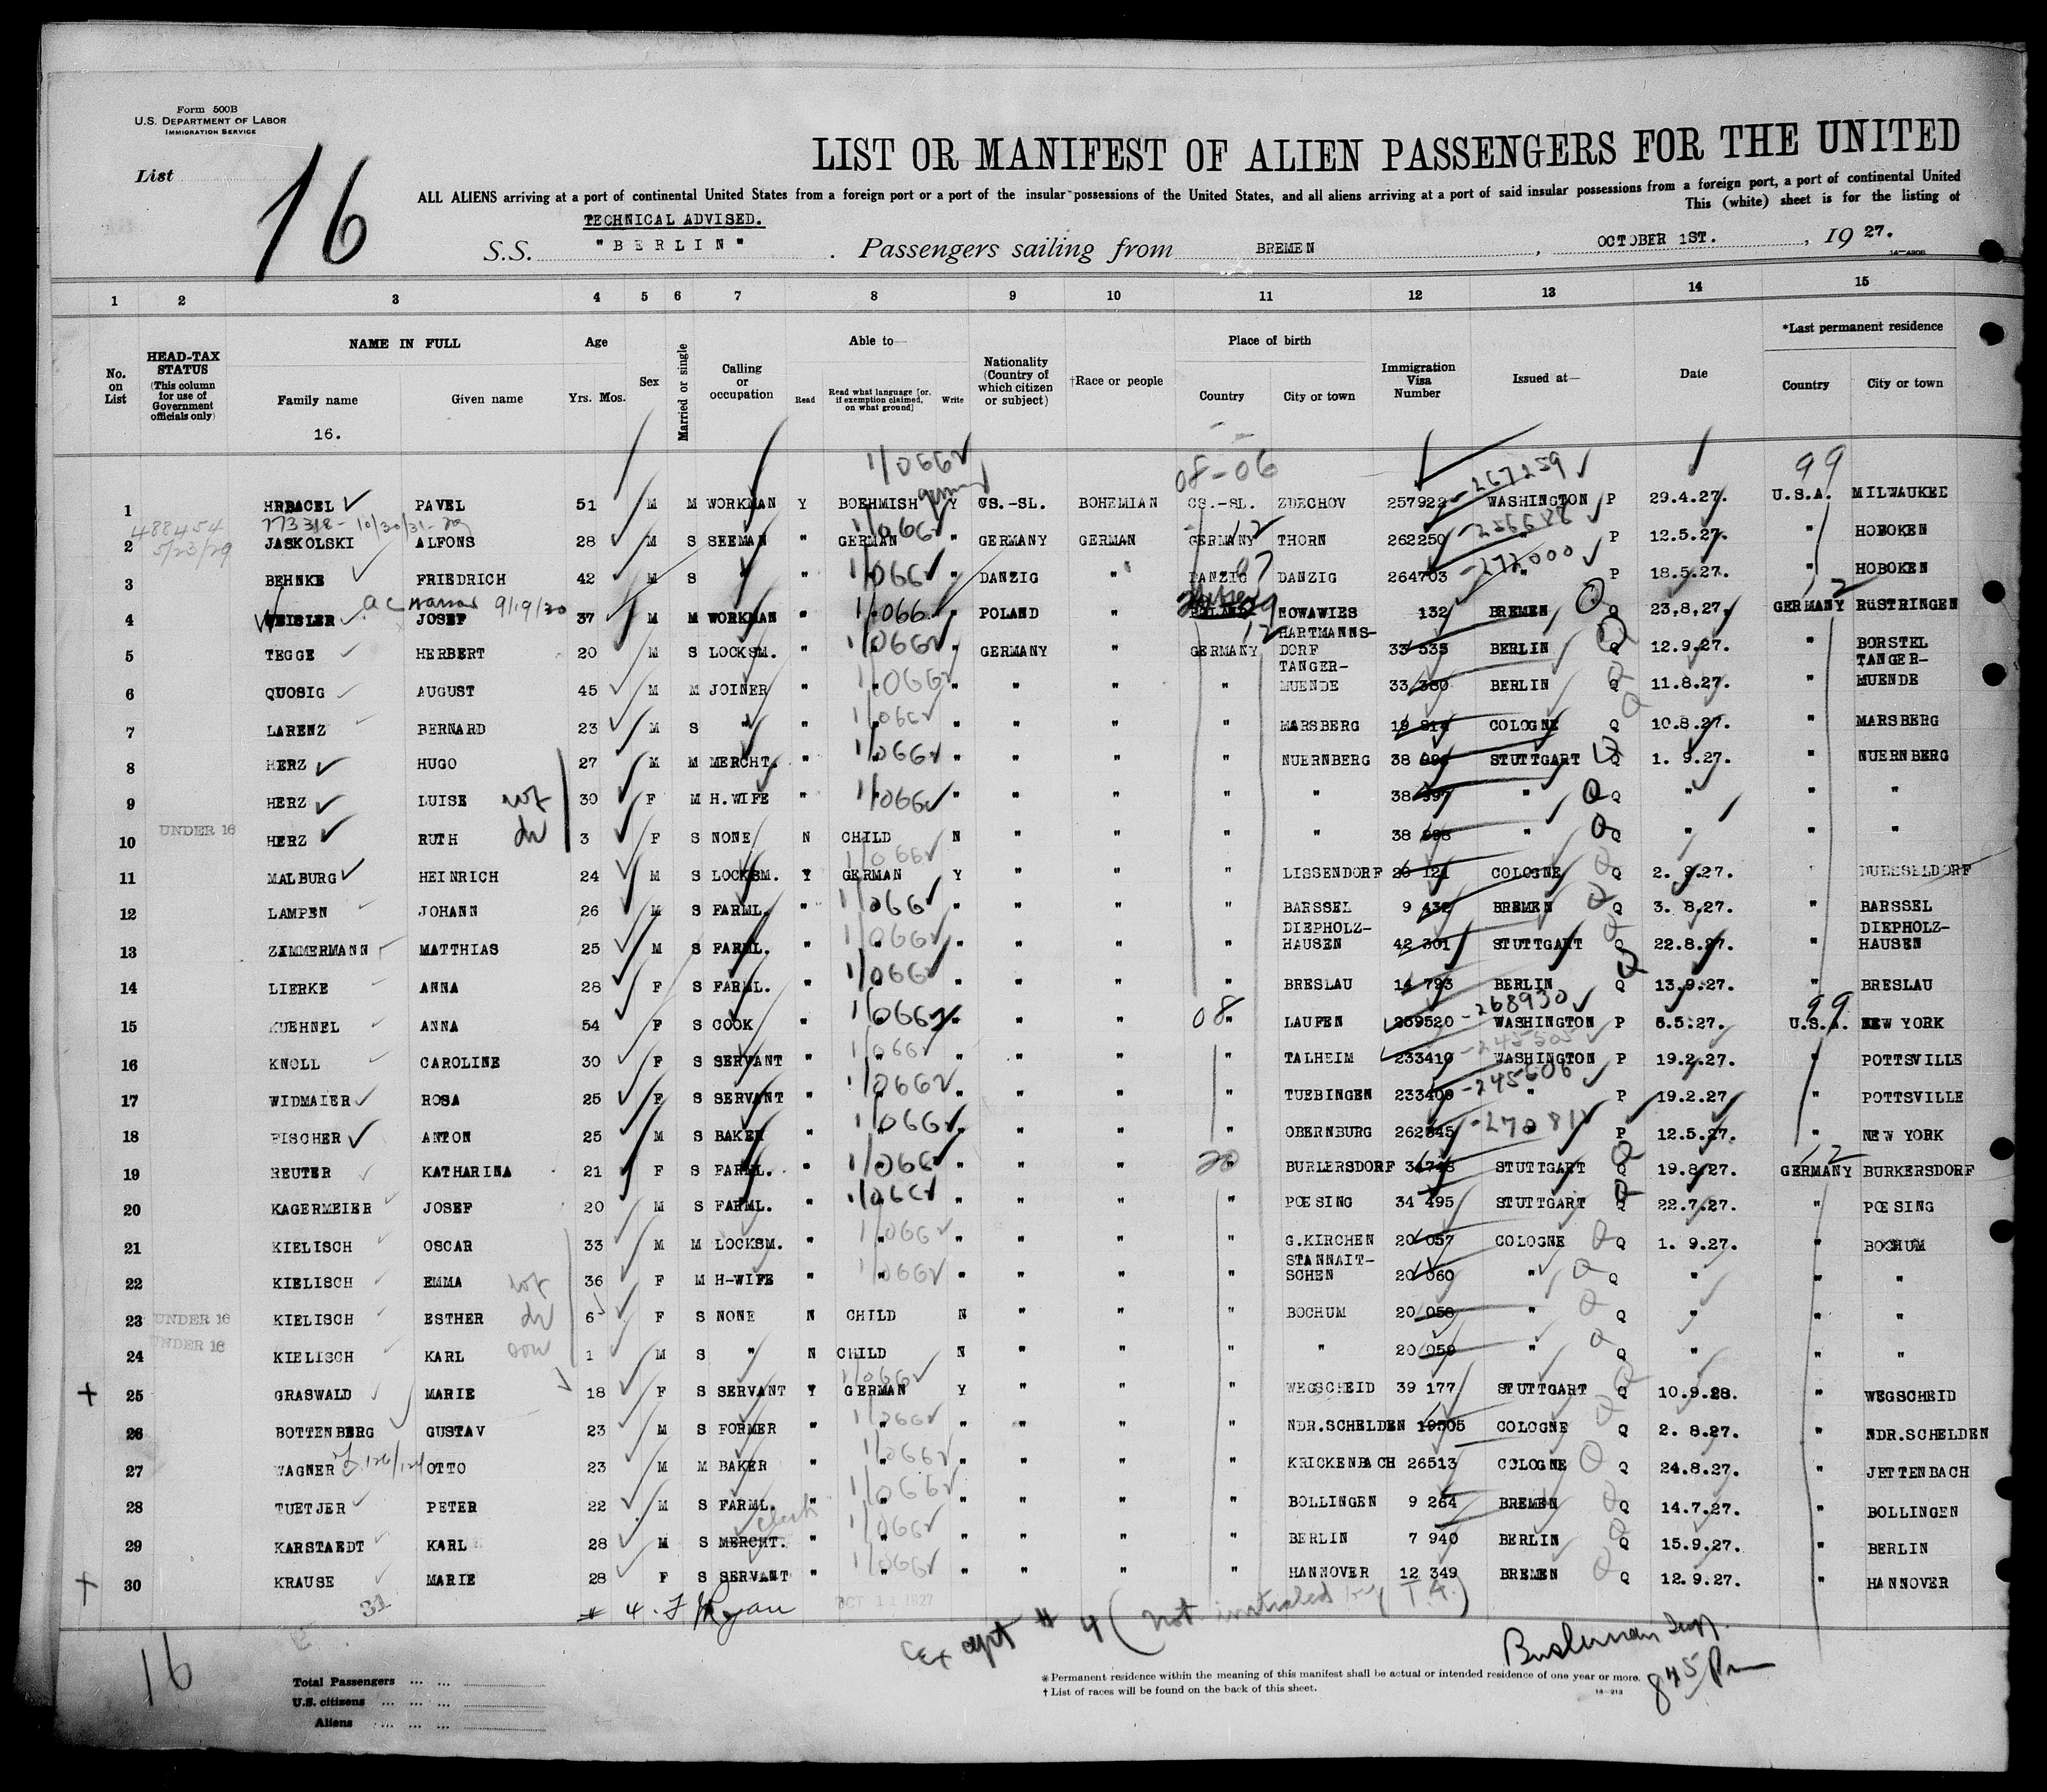 Form 500B
U.S. DEPARTMENT OF LABOR
IMMIGRATION SERVICE
List 16
LIST OR MANIFEST OF ALIEN PASSENGERS FOR THE UNITED
ALL ALIENS arriving at a port of continental United States from a foreign port or a port of the insular possessions of the United States, and all aliens arriving at a port of said insular possessions from a foreign port, a port of continental United
This (white) sheet is for the listing of
TECHNICAL ADVISED.
S.S. "BERLIN" . Passengers sailing from BREMEN , OCTOBER 1ST. , 19 27.
1 2 3 4 5 6 7 8 9 10 11 12 13 14 15
No. on List
HEAD-TAX STATUS (This column for use of Government officials only)
NAME IN FULL
Family name Given name
16.
Age
Yrs. Mos.
Sex
Married or single
Calling or occupation
Able to—
Read Read what language [or, if exemption claimed, on what ground] Write
Nationality (Country of which citizen or subject)
†Race or people
Place of birth
Country City or town
Immigration Visa Number
Issued at—
Date
*Last permanent residence
Country City or town
1/066 08-06 -267259 99
1 HRBACEL PAVEL 51 M M WORKMAN Y BOEHMISH german Y CS.-SL. BOHEMIAN CS.-SL. ZDECHOV 257922 WASHINGTON P 29.4.27. U.S.A. MILWAUKEE
488454 773318- 10/30/31
5/23/29
2 JASKOLSKI ALFONS 28 M S SEEMAN " GERMAN 1/066 " GERMANY GERMAN GERMANY 12 THORN 262250 " P 12.5.27. " HOBOKEN
3 BEHNKE FRIEDRICH 42 M S " " 1/066 " DANZIG " DANZIG DANZIG 264703 -272000 " P 18.5.27. " HOBOKEN
4 WEISLER JOSEF 9/19/30 37 M M WORKMAN " 1/066 " POLAND " POLAND NOWAWIES 132 BREMEN Q 23.8.27. GERMANY 12 RÜSTRINGEN
5 TEGGE HERBERT 20 M S LOCKSM. " 1/066 " GERMANY " GERMANY 12 HARTMANNS-DORF 33 535 BERLIN Q 12.9.27. " BORSTEL
6 QUOSIG AUGUST 45 M M JOINER " 1/066 " " " " TANGER-MUENDE 33 380 BERLIN Q 11.8.27. " TANGER-MUENDE
7 LARENZ BERNARD 23 M S " " 1/066 " " " " MARSBERG COLOGNE Q 10.8.27. " MARSBERG
8 HERZ HUGO 27 M M MERCHT. " 1/066 " " " " NUERNBERG 38 STUTTGART Q 1. 9.27. " NUERNBERG
9 HERZ LUISE wf 30 F M H.WIFE " 1/066 " " " " " 38 " Q " " "
UNDER 16
10 HERZ RUTH da 3 F S NONE N CHILD N " " " " 38 " Q " " "
11 MALBURG HEINRICH 24 M S LOCKSM. Y GERMAN 1/066 Y " " " LISSENDORF 26 121 COLOGNE Q 2. 9.27. " DUESSELDORF
12 LAMPEN JOHANN 26 M S FARML. " 1/066 " " " " BARSSEL 9 432 BREMEN Q 3. 8.27. " BARSSEL
13 ZIMMERMANN MATTHIAS 25 M S FARML. " 1/066 " " " " DIEPHOLZ-HAUSEN 42 301 STUTTGART Q 22.8.27. " DIEPHOLZ-HAUSEN
14 LIERKE ANNA 28 F S FARML. " 1/066 " " " " BRESLAU 14 793 BERLIN Q 13.9.27. " BRESLAU
15 KUEHNEL ANNA 54 F S COOK " 1/066 " " " 08 " LAUFEN 259520 -268930 WASHINGTON P 6.5.27. U.S.A. 99 NEW YORK
16 KNOLL CAROLINE 30 F S SERVANT " 1/066 " " " " TALHEIM 233410 -245505 WASHINGTON P 19.2.27. " POTTSVILLE
17 WIDMAIER ROSA 25 F S SERVANT " 1/066 " " " " TUEBINGEN 233409 -245606 " P 19.2.27 " POTTSVILLE
18 FISCHER ANTON 25 M S BAKER " 1/066 " " " " OBERNBURG 262845 -270811 " P 12.5.27. " NEW YORK
19 REUTER KATHARINA 21 F S FARML. " 1/066 " " " 20 " BURLERSDORF STUTTGART Q 19.8.27. GERMANY 12 BURKERSDORF
20 KAGERMEIER JOSEF 20 M S FARML. " 1/066 " " " " POESING 34 495 STUTTGART Q 22.7.27. " POESING
21 KIELISCH OSCAR 33 M M LOCKSM. " 1/066 " " " " G.KIRCHEN 20 057 COLOGNE Q 1. 9.27. " BOCHUM
22 KIELISCH EMMA wf 36 F M H-WIFE " 1/066 " " " " STANNAIT-SCHEN 20 060 " Q " " "
UNDER 16
23 KIELISCH ESTHER da 6 F S NONE N CHILD N " " " BOCHUM 20 058 " Q " " "
UNDER 16
24 KIELISCH KARL son 1 M S " N CHILD N " " " " 20 059 " Q " " "
+ 25 GRASWALD MARIE 18 F S SERVANT Y GERMAN 1/066 Y " " " WEGSCHEID 39 177 STUTTGART Q 10.9.28. " WEGSCHEID
26 BOTTENBERG GUSTAV 23 M S FORMER " 1/066 " " " " NDR.SCHELDEN 19505 COLOGNE Q 2. 8.27. " NDR.SCHELDEN
27 WAGNER OTTO 23 M M BAKER " 1/066 " " " " KRICKENBACH 26513 COLOGNE Q 24.8.27. " JETTENBACH
28 TUETJER PETER 22 M S FARML. " 1/066 " " " " BOLLINGEN 9 264 BREMEN Q 14.7.27. " BOLLINGEN
29 KARSTAEDT KARL 28 M S MERCHT. clerk " 1/066 " " " " BERLIN 7 940 BERLIN Q 15.9.27. " BERLIN
+ 30 KRAUSE MARIE 28 F S SERVANT " 1/066 " " " " HANNOVER 12 349 BREMEN Q 12.9.27. " HANNOVER
31 # 4. J Ryan OCT 11 1927
Except # 4 (not initialed by T.A.)
Insp.
845 Pm
16
Total Passengers ... ...
U.S. citizens ... ... ...
Aliens ... ... ...
* Permanent residence within the meaning of this manifest shall be actual or intended residence of one year or more.
† List of races will be found on the back of this sheet.
14—213